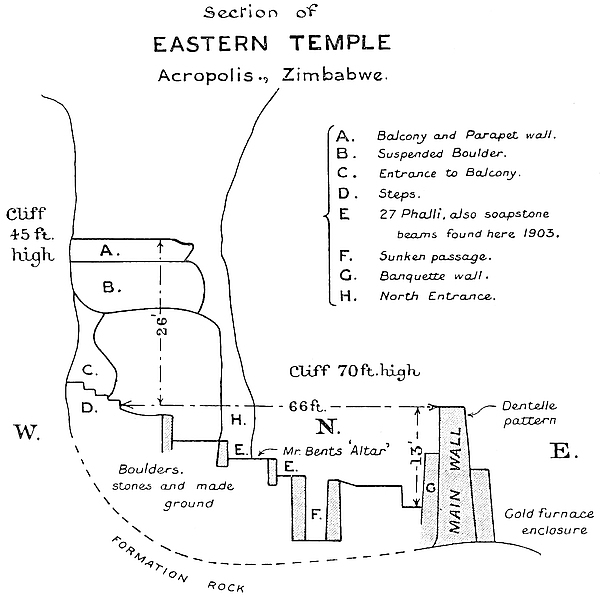 Section of
EASTERN TEMPLE
Acropolis., Zimbabwe.
A. Balcony and Parapet wall.
B. Suspended Boulder.
C. Entrance to Balcony.
D. Steps.
E 27 Phalli, also soapstone
beams found here 1903.
F. Sunken passage.
G. Banquette wall.
H. North Entrance.
Cliff
45 ft.
high
A.
B.
26'
C.
D.
Cliff 70 ft. high
66 ft.
W.
H.
N.
13'
Dentelle
pattern
E.
E.
Mr. Bents 'Altar'
E.
Boulders.
stones and made
ground
F.
G
MAIN WALL
Gold furnace
enclosure
FORMATION ROCK